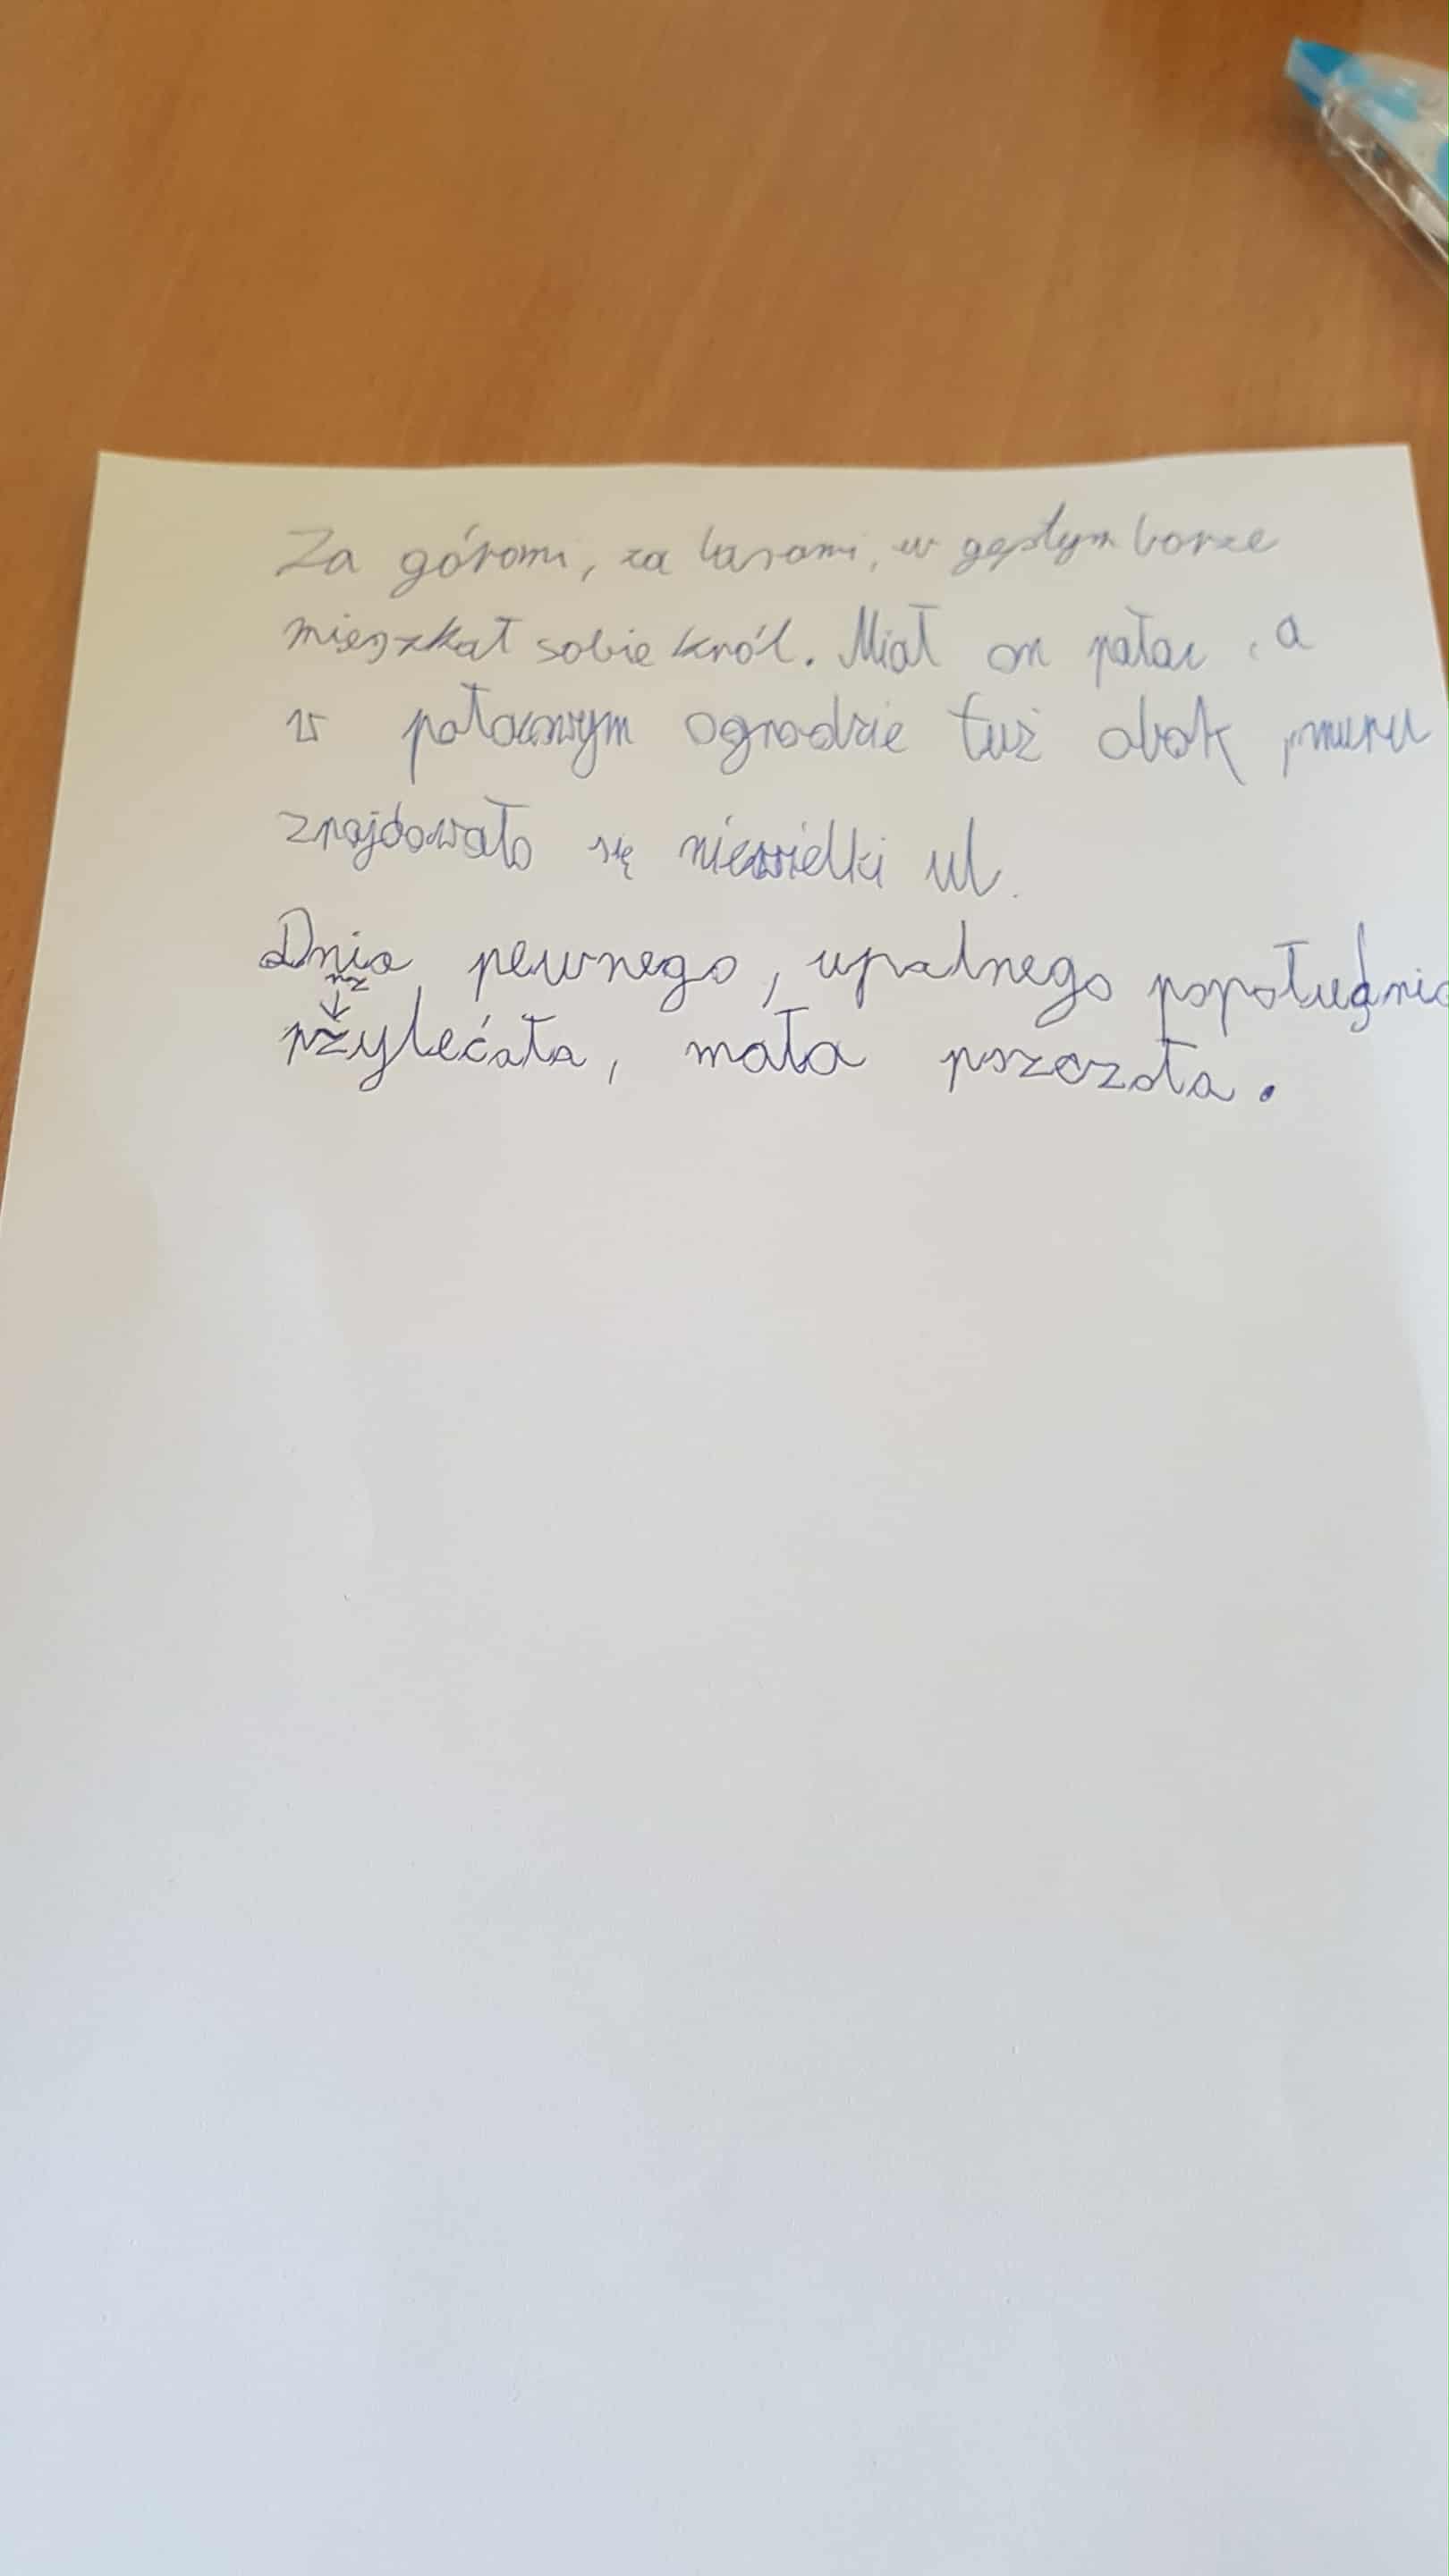 Za górami, za lasami, w gęstym borze
mieszkał sobie król. Miał on pałac, a
w pałacowym ogrodzie tuż obok muru
znajdowało się niewielki ul.
Dnia pewnego, upalnego popołudnia
rz
pżylećała, mała pszczoła.